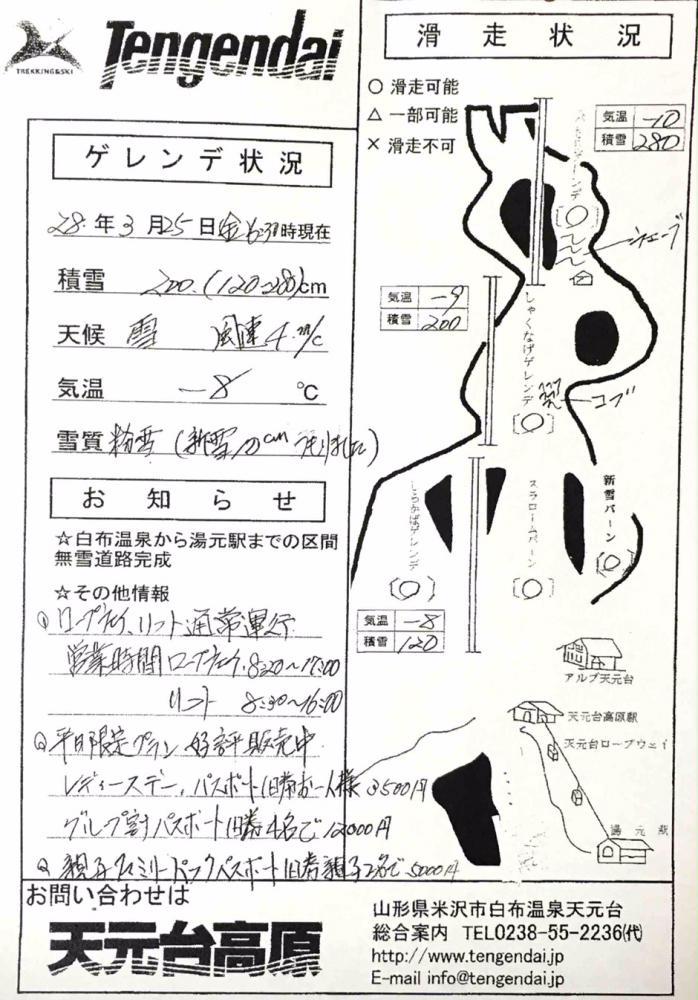 TREKKING&SKI
Tengendai
ゲレンデ状況
28年3月25日(金)6:30時現在
積雪 200(120-280)cm
天候 雪 風速4m/s
気温 -8 ℃
雪質 粉雪(新雪10cm
お知らせ
☆白布温泉から湯元駅までの区間
無雪道路完成
☆その他情報
ロープウェイ、リフト通常運行
営業時間ロープウェイ8:20~17:00
リフト 8:30~16:00
平日限定プラン 好評販売中
レディースデー、パスポート1日券お一人様3500円
グループ割パスポート1日券4名で12000円
親子ファミリーパックパスポート1日券親子2名で5000円
滑走状況
○ 滑走可能
△ 一部可能
× 滑走不可
気温 -10
積雪 280
[○]
シュプール
気温 -9
積雪 200
しゃくなげゲレンデ
コブ
[○]
しらかばゲレンデ
[○]
スラロームバーン
[○]
新雪バーン
[○]
気温 -8
積雪 120
アルブ天元台
天元台高原駅
天元台ロープウェイ
湯元駅
お問い合わせは
天元台高原
山形県米沢市白布温泉天元台
総合案内 TEL0238-55-2236(代)
http://www.tengendai.jp
E-mail info@tengendai.jp